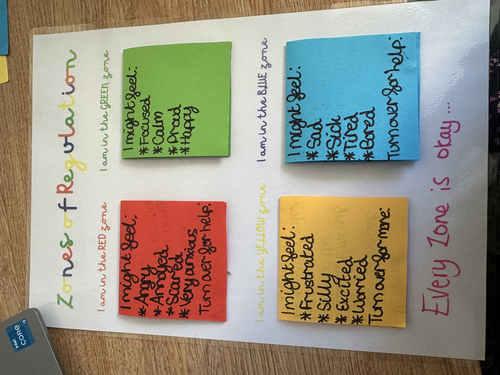 Zones of Regulation
I am in the GREEN zone
I might feel:
* Focused
* Calm
* Proud
* Happy
I am in the BLUE zone
I might feel:
* Sad
* Sick
* Tired
* Bored
Turn over for help:
I am in the RED zone
I might feel:
* Angry
* Annoyed
* Scared
* Very anxious
Turn over for help:
I am in the YELLOW zone
I might feel:
* Frustrated
* Silly
* Excited
* Worried
Turn over for more:
Every Zone is okay...
CORE